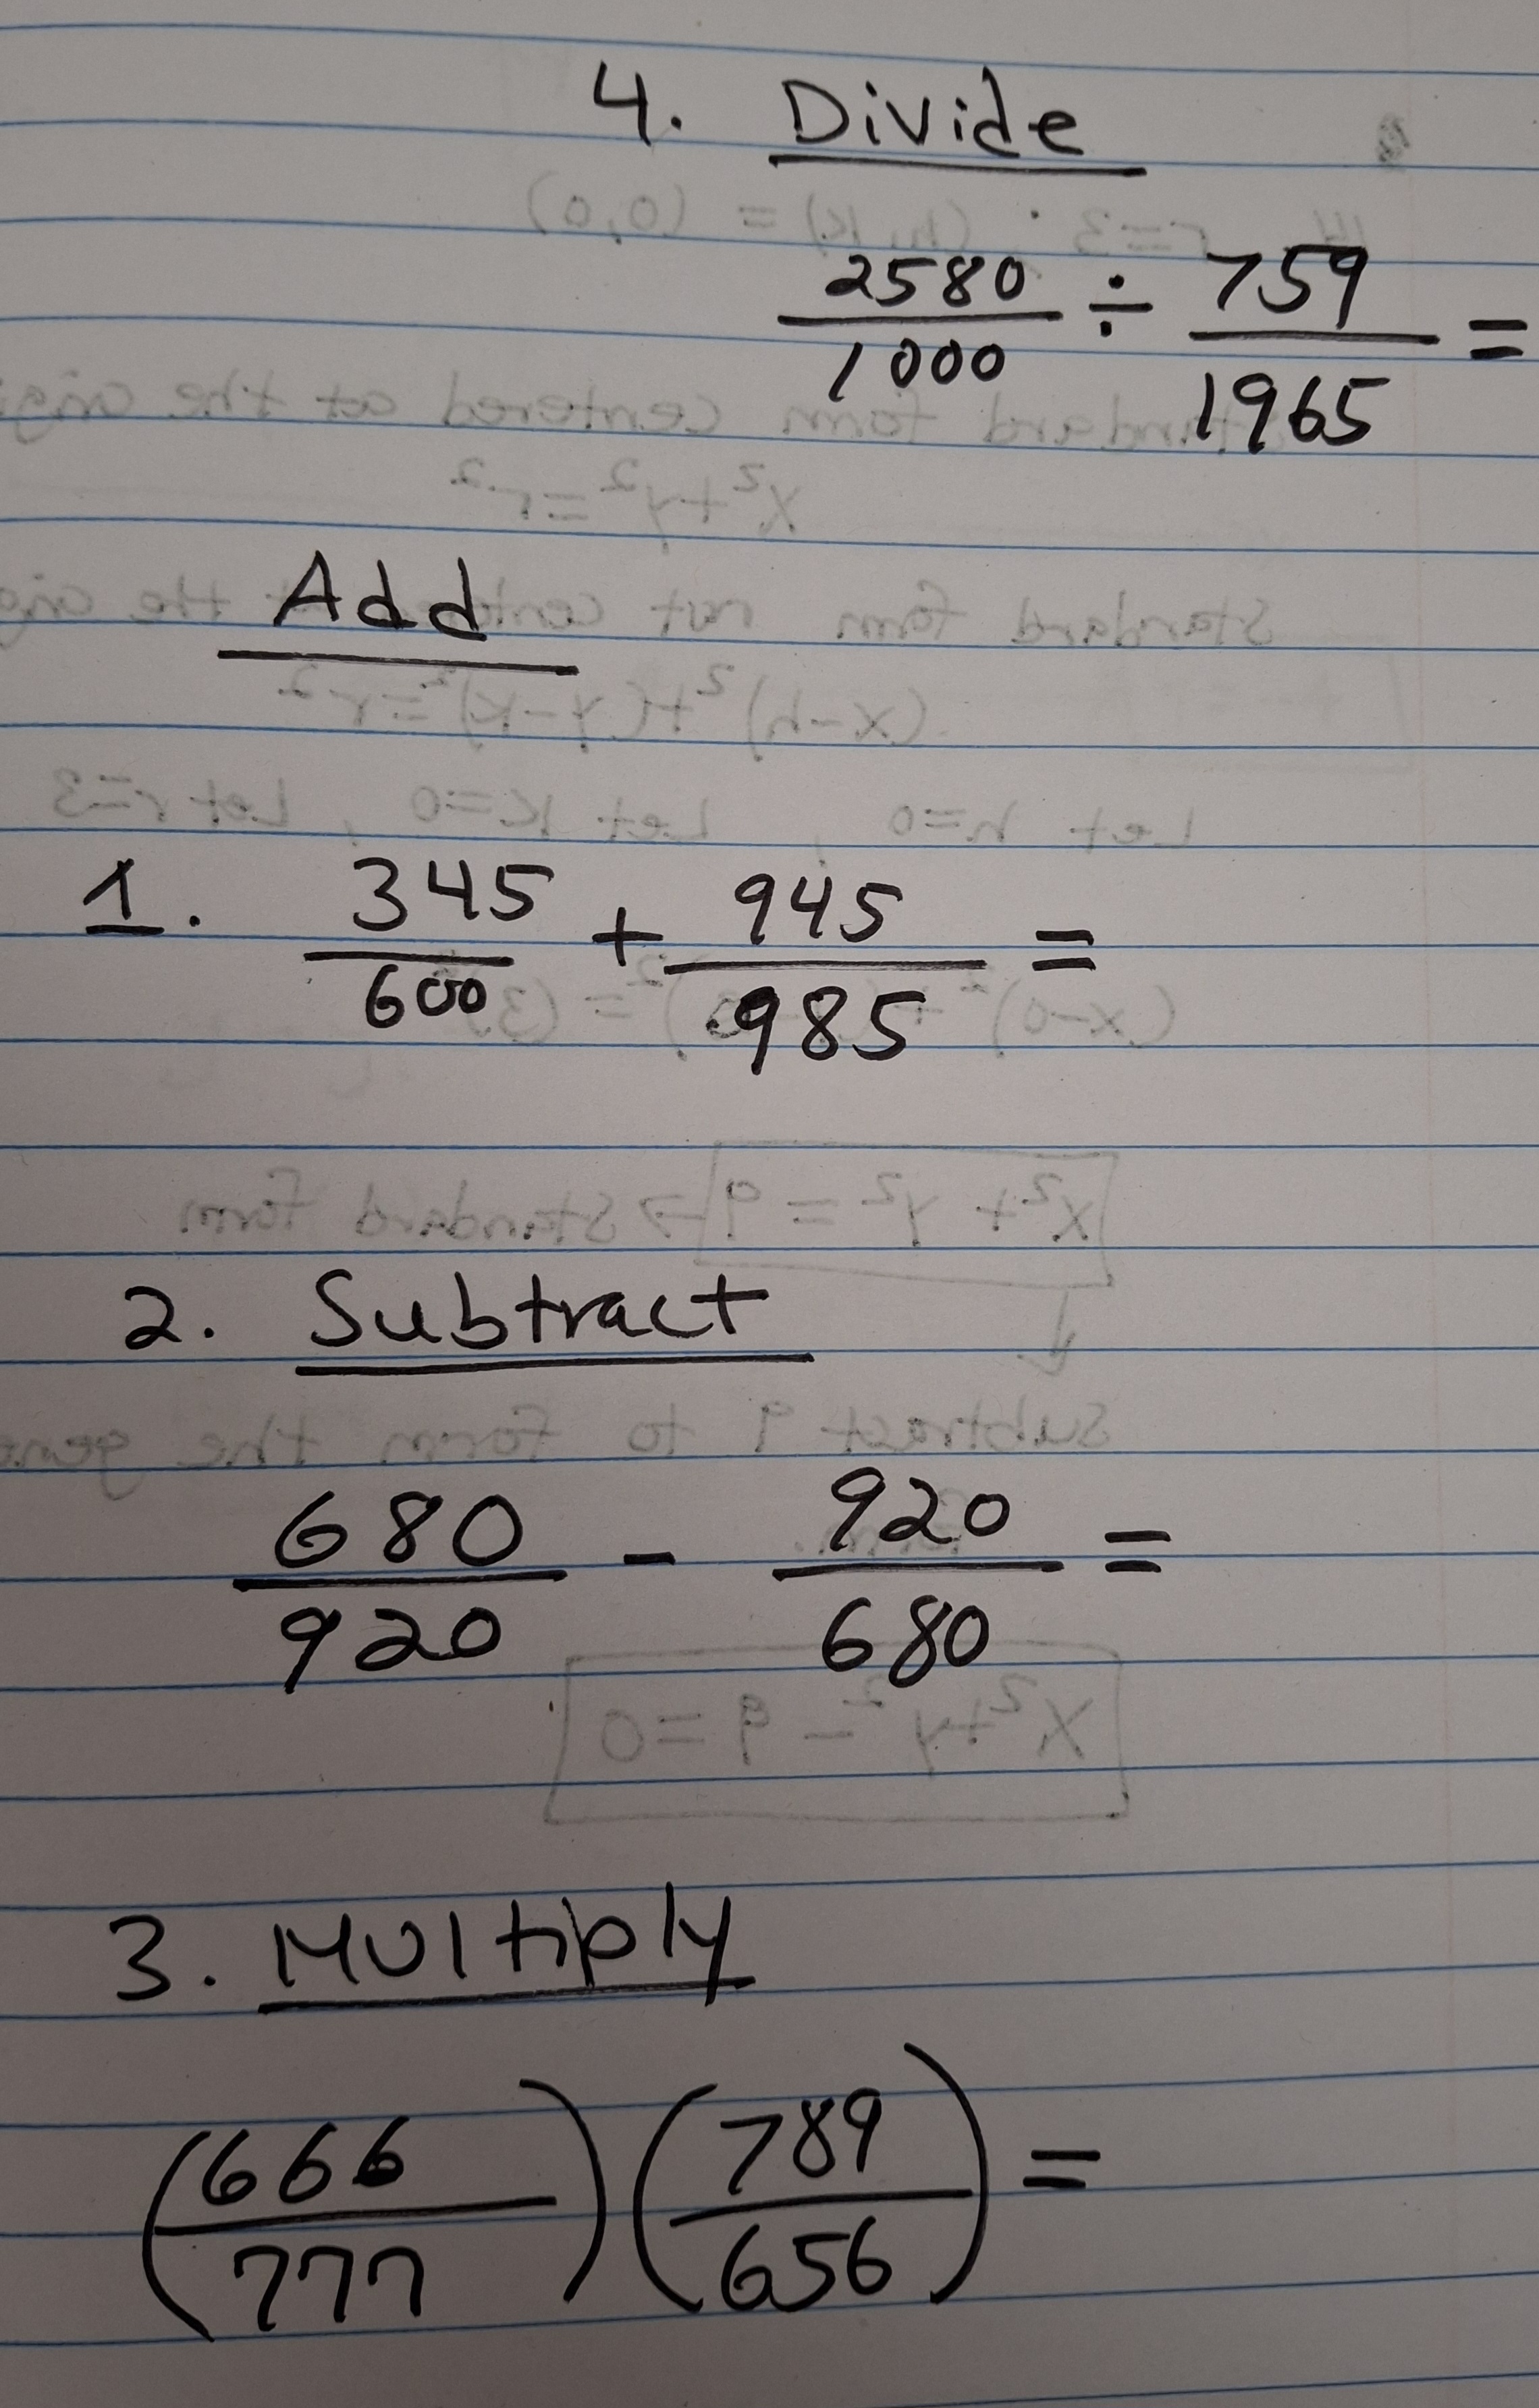 4. Divide
2580/1000 ÷ 759/1965 =
Add
1. 345/600 + 945/985 =
2. Subtract
680/920 - 920/680 =
3. Multiply
(666/777)(789/656) =